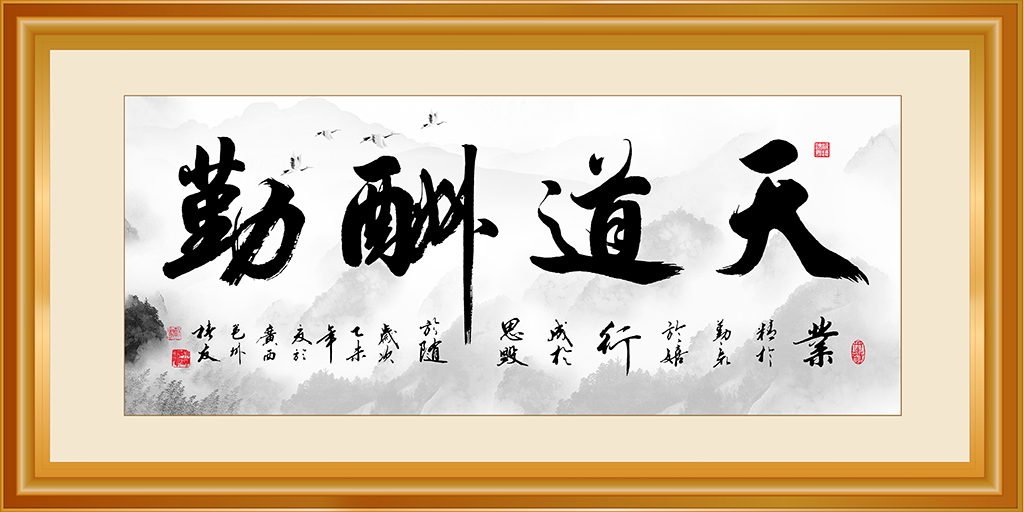 天道酬勤
業精於勤荒於嬉行成於思毀於随歲次乙未年夏於廣西邕州友